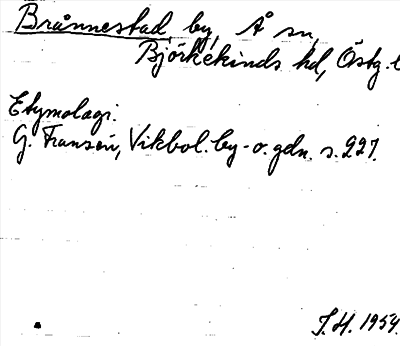 Brånnestad, by, Å sn,
Björkekinds hd, Östg.
Etymologi.
G. Franzén, Vikbol. by- o. gdn. s. 227.
J.H. 1954.